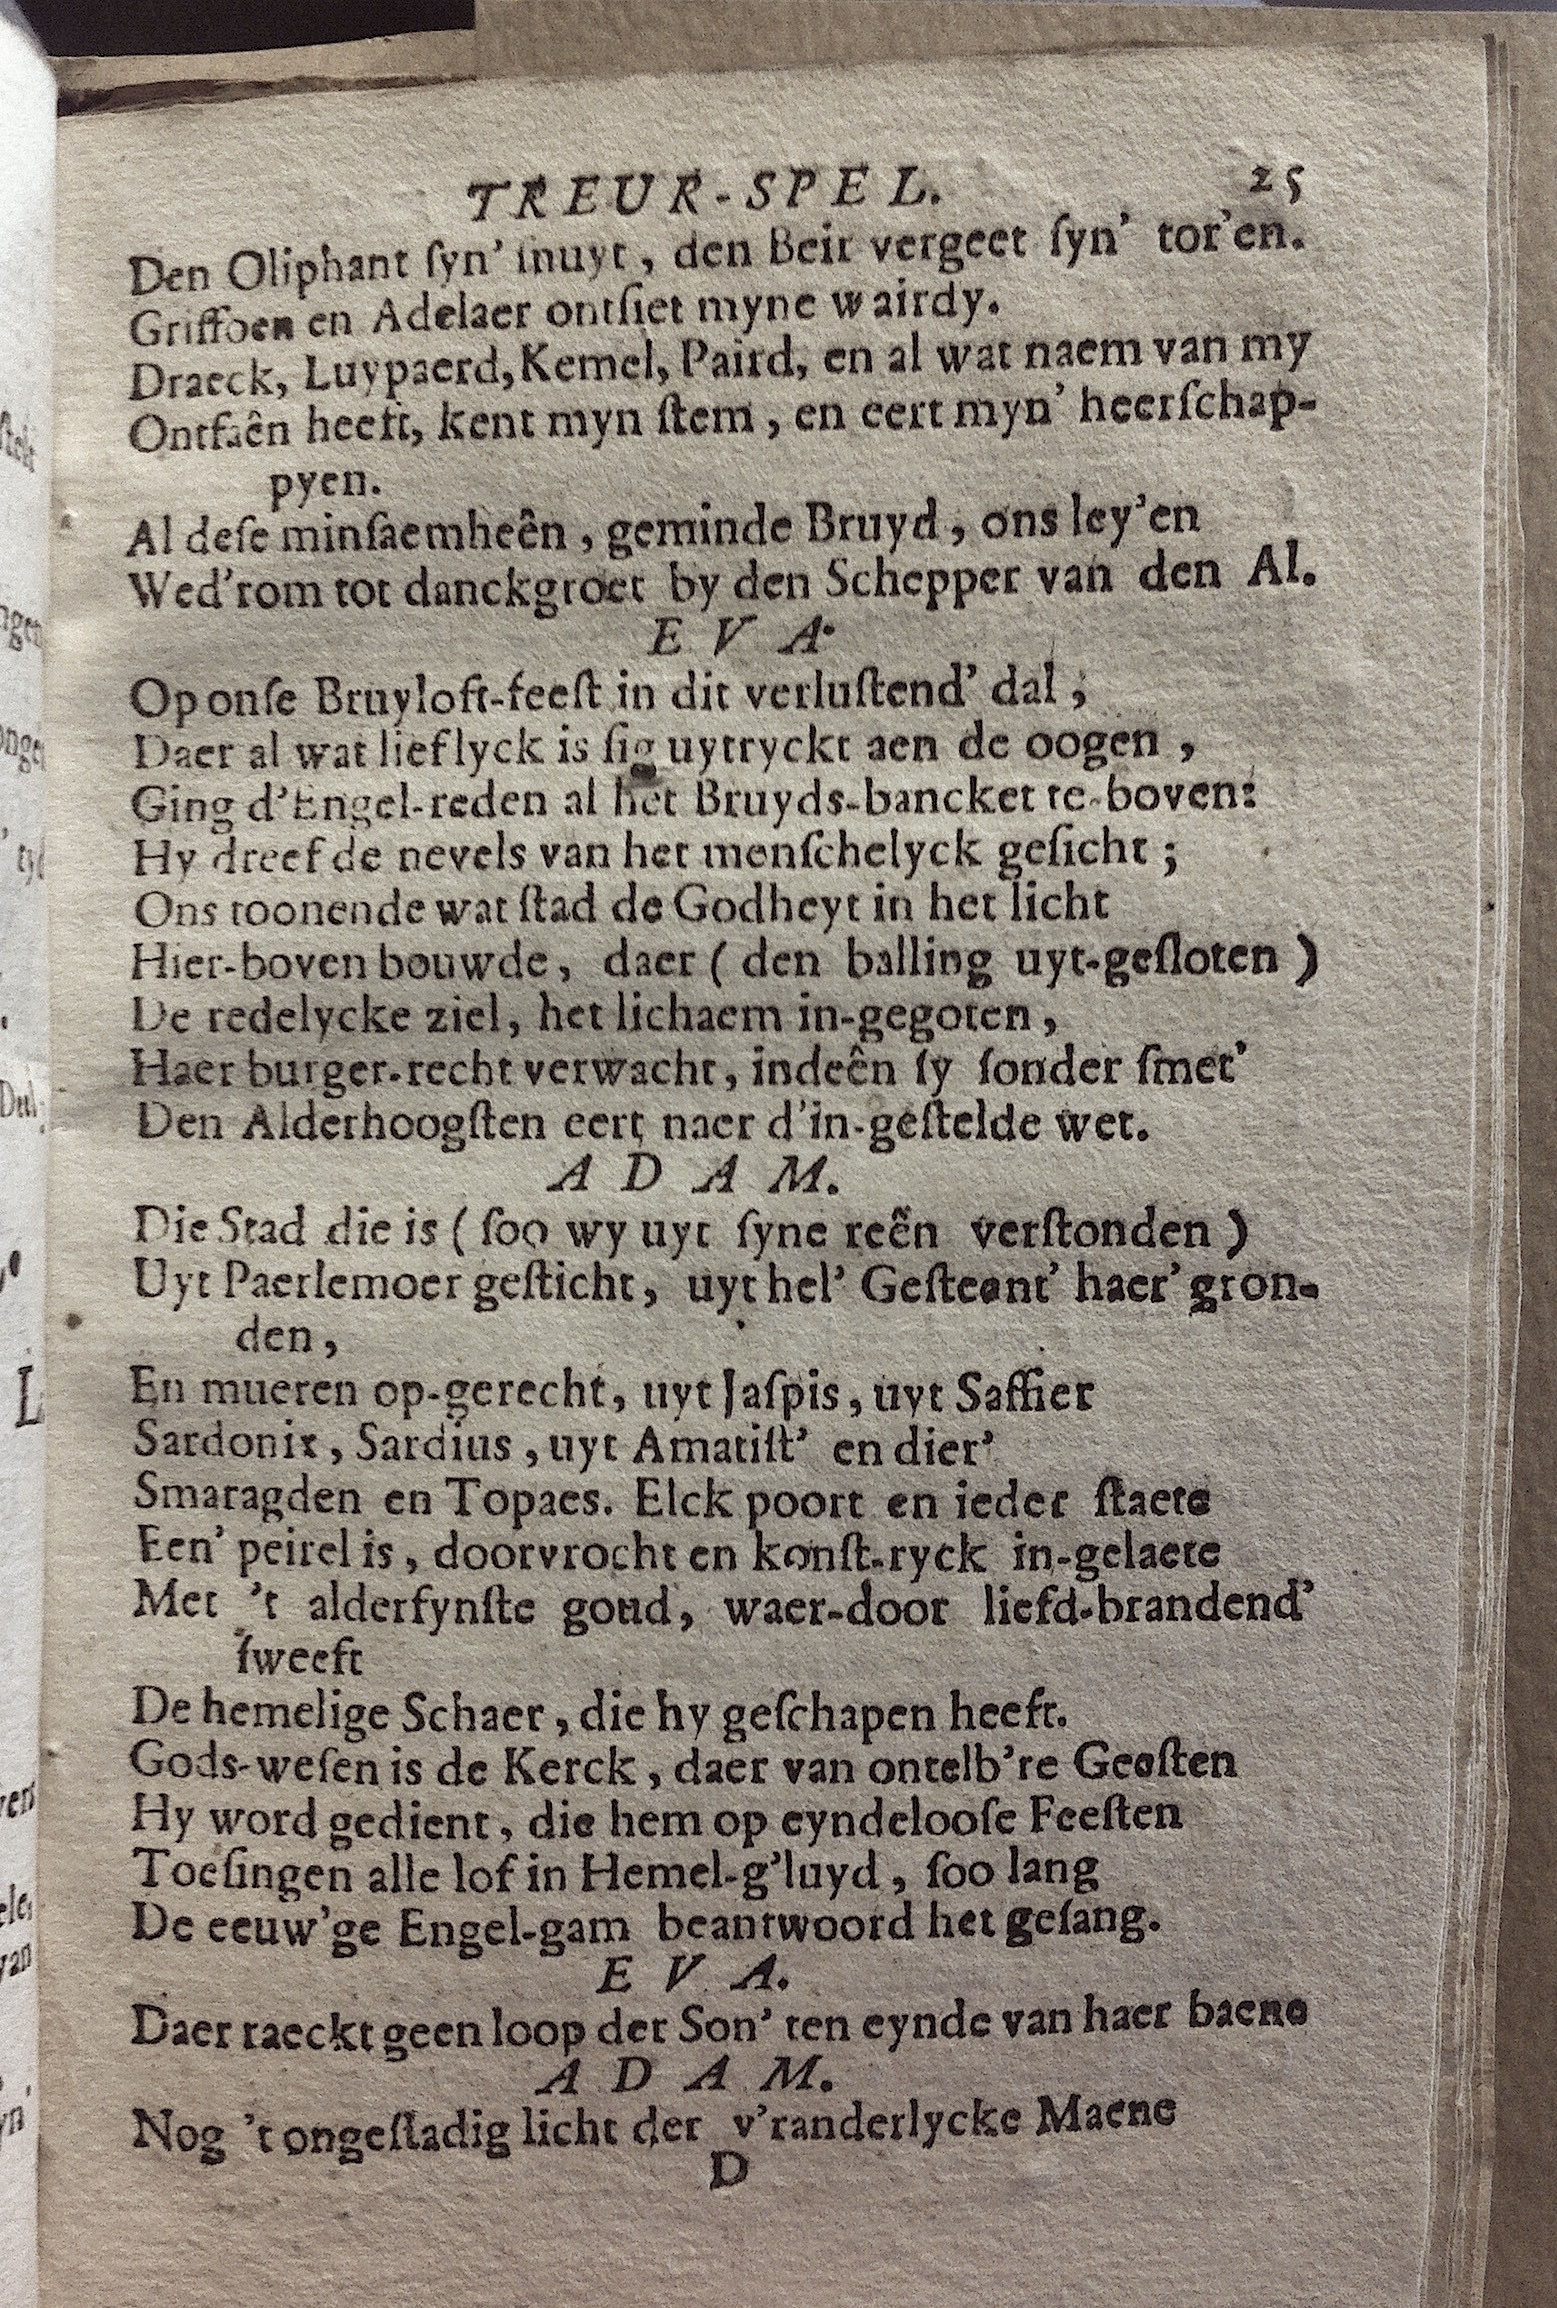 TREUR-SPEL. 25
Den Oliphant ſyn' ſnuyt, den Beir vergeet ſyn' tor'en.
Griffoen en Adelaer ontſiet myne wairdy.
Draeck, Luypaerd, Kemel, Paird, en al wat naem van my
Ontfaên heeft, kent myn ſtem, en eert myn' heerſchap-
pyen.
Al deſe minſaemheên, geminde Bruyd, ons ley'en
Wed'rom tot danckgroet by den Schepper van den Al.
EVA.
Op onſe Bruyloft-feeſt in dit verluſtend' dal;
Daer al wat lieflyck is ſig uytryckt aen de oogen,
Ging d'Engel-reden al het Bruyds-bancket te-boven:
Hy dreef de nevels van het menſchelyck geſicht;
Ons toonende wat ſtad de Godheyt in het licht
Hier-boven bouwde, daer (den balling uyt-geſloten)
De redelycke ziel, het lichaem in-gegoten,
Haer burger-recht verwacht, indeên ſy ſonder ſmet'
Den Alderhoogſten eert naer d'in-geſtelde wet.
ADAM.
Die Stad die is (ſoo wy uyt ſyne reên verſtonden)
Uyt Paerlemoer geſticht, uyt hel' Geſteent' haer' gron-
den,
En mueren op-gerecht, uyt Jaſpis, uyt Saffier
Sardonix, Sardius, uyt Amatiſt' en dier'
Smaragden en Topaes. Elck poort en ieder ſtaete
Een' peirel is, doorvrocht en konſt-ryck in-gelaete
Met 't alderfynſte goud, waer-door liefd-brandend'
ſweeft
De hemelige Schaer, die hy geſchapen heeft.
Gods-weſen is de Kerck, daer van ontelb're Geeſten
Hy word gedient, die hem op eyndelooſe Feeſten
Toeſingen alle lof in Hemel-g'luyd, ſoo lang
De eeuw'ge Engel-gam beantwoord het geſang.
EVA.
Daer raeckt geen loop der Son' ten eynde van haer baene
ADAM.
Nog 't ongeſtadig licht der v'randerlycke Maene
D